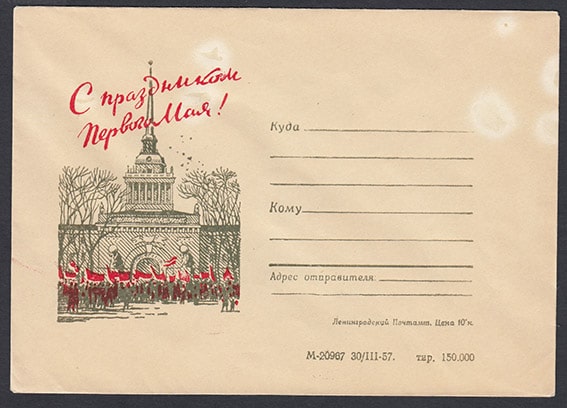 С праздником
Первого Мая!
Куда
Кому
Адрес отправителя:
Ленинградский Почтамт. Цена 10 к.
М-20967 30/III-57. тир. 150.000